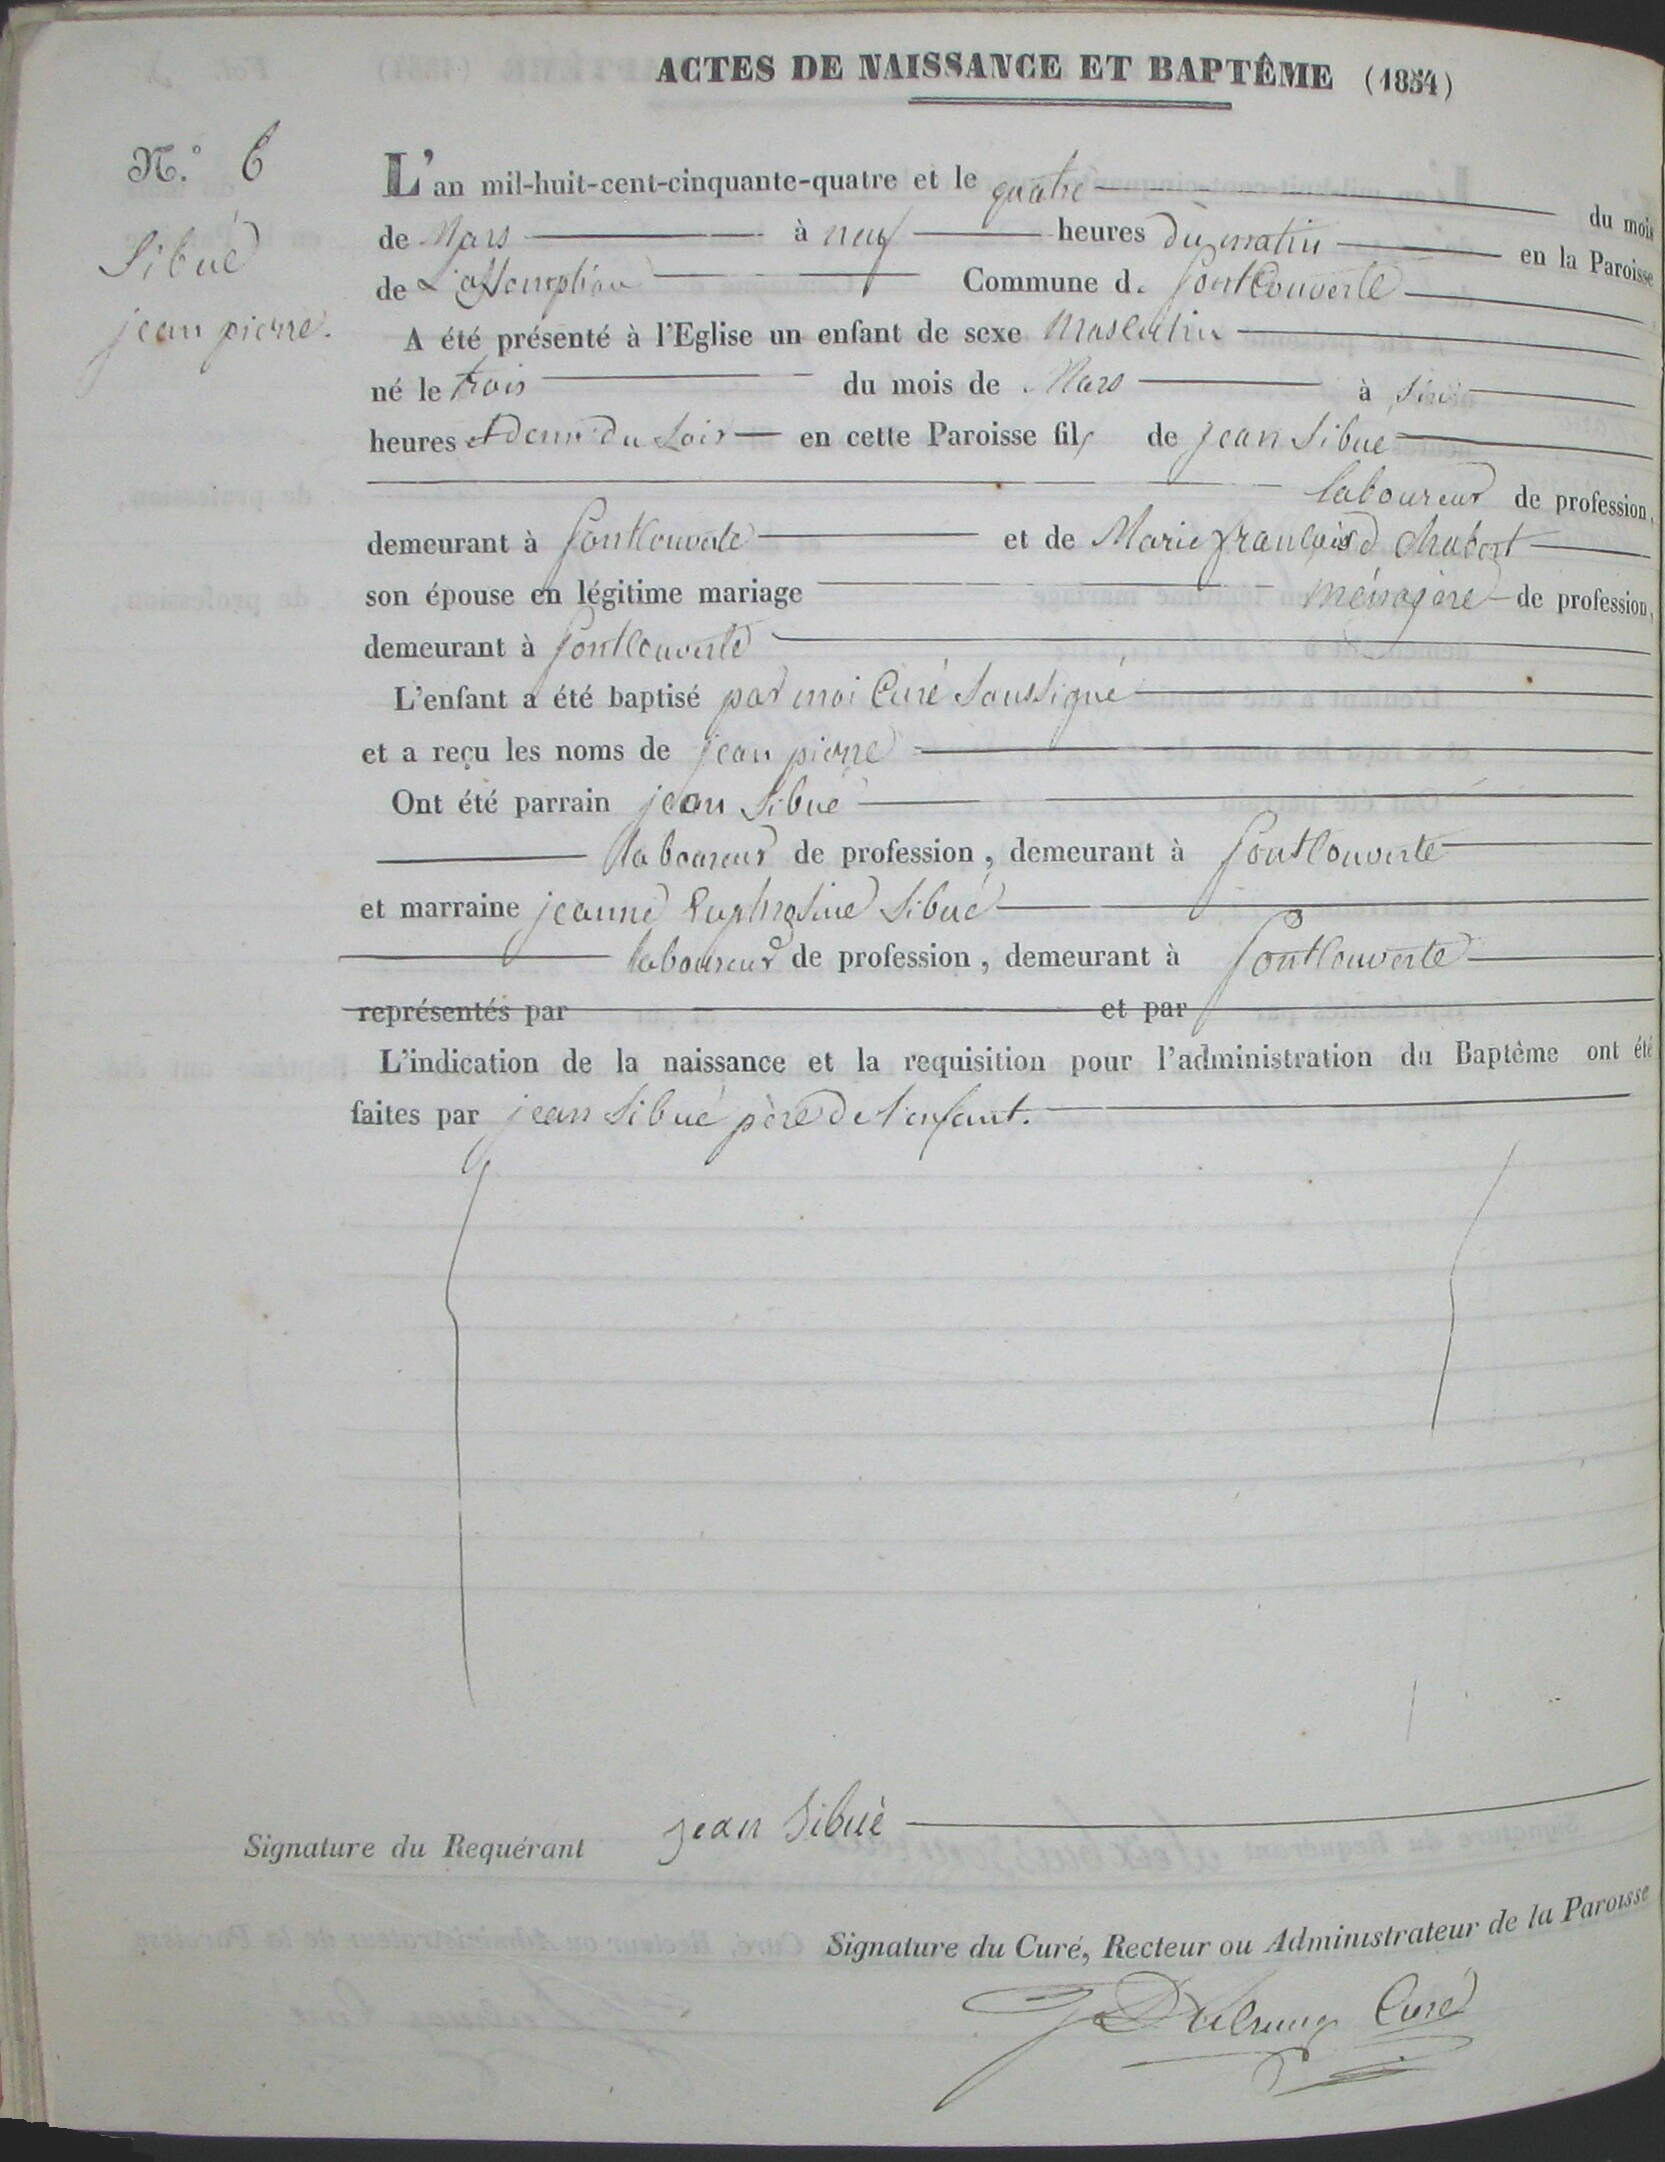 ACTES DE NAISSANCE ET BAPTÊME (1854)
N.° 6
Sibué
jean pierre.
L'an mil-huit-cent-cinquante-quatre et le quatre du mois
de Mars à neuf heures du matin en la Paroisse
de L'assomption Commune de fontcouverte
A été présenté à l'Eglise un enfant de sexe Masculin
né le trois du mois de Mars à
heures et demi du soir en cette Paroisse fils de jean Sibue
laboureur de profession,
demeurant à fontcouverte et de Marie françoise chabert
son épouse en légitime mariage ménagère de profession,
demeurant à fontcouverte
L'enfant a été baptisé par moi Curé Soussigné
et a reçu les noms de jean pierre
Ont été parrain jean Sibué
laboureur de profession, demeurant à fontcouverte
et marraine jeanne Euphrosine Sibué
laboureur de profession, demeurant à fontcouverte
représentés par et par
L'indication de la naissance et la requisition pour l'administration du Baptême ont été
faites par jean Sibué père de l'enfant.
Signature du Requérant jean Sibué
Signature du Curé, Recteur ou Administrateur de la Paroisse
Curé